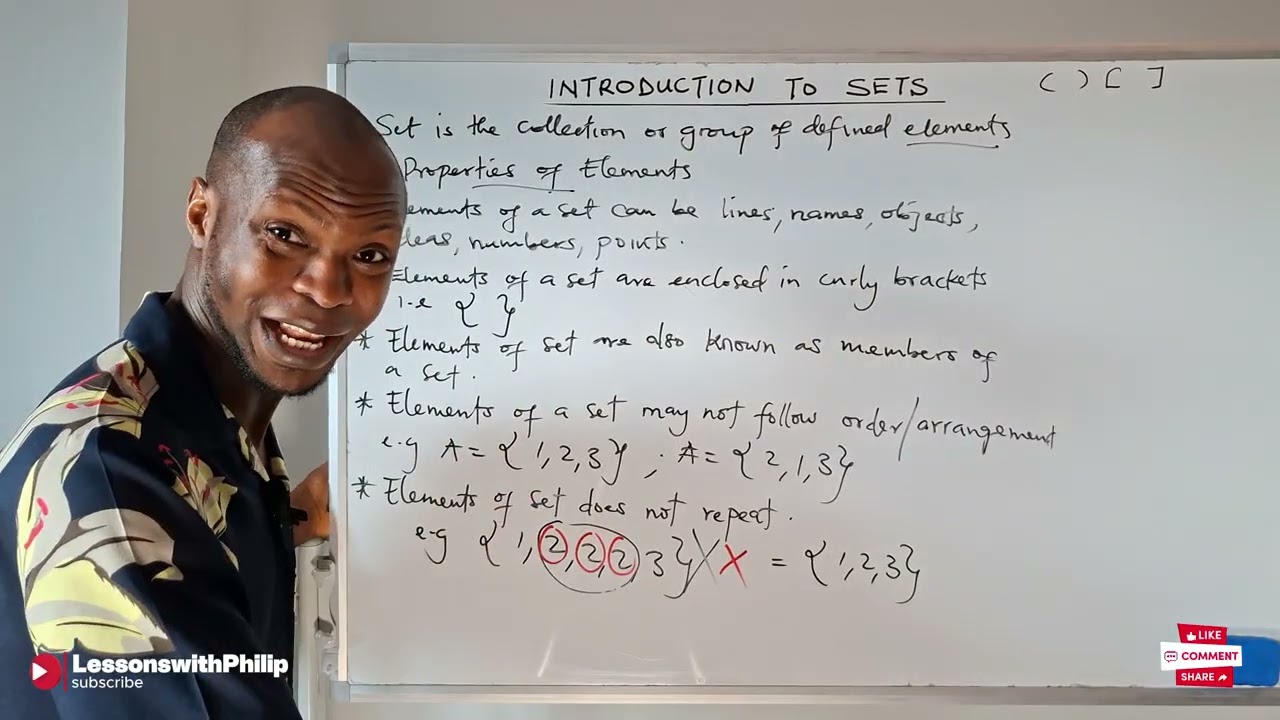 INTRODUCTION TO SETS ( ) [ ]
Set is the collection or group of defined elements
Properties of Elements
ements of a set can be lines, names, objects,
deas, numbers, points.
Elements of a set are enclosed in curly brackets
i-e { }
* Elements of set are also known as members of
a set.
* Elements of a set may not follow order/arrangement
e.g A = { 1, 2, 3 } ; A = { 2, 1, 3 }
* Elements of set does not repeat.
e-g { 1, 2, 2, 2, 3 } X X = { 1, 2, 3 }
LessonswithPhilip
subscribe
LIKE
COMMENT
SHARE